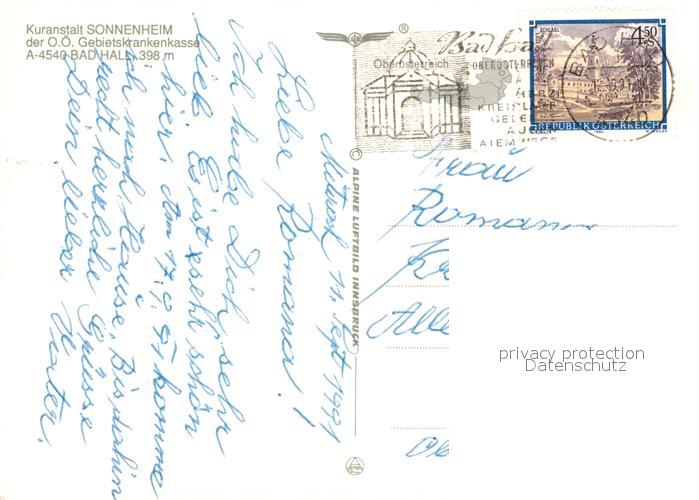 Kuranstalt SONNENHEIM
der O.Ö. Gebietskrankenkasse
A-4540 BAD HALL, 398 m
AEW
®
Oberösterreich
Bad Hall
OBERÖSTERREICH
HERZ
KREISLAUF
GELENKE
AUGEN
ATEMWEGE
SCHLÄGL
4.50
S
REPUBLIK ÖSTERREICH
ALPINE LUFTBILD INNSBRUCK
Mittwoch 11. Sept 1991
Liebe Romana!
Ich habe Dich sehr
lieb. Es ist sehr schön
hier. Am 17.9.91 komme
ich nach Hause. Bis dahin
recht herzliche Grüsse
Dein lieber
Frau
Romana
privacy protection
Datenschutz